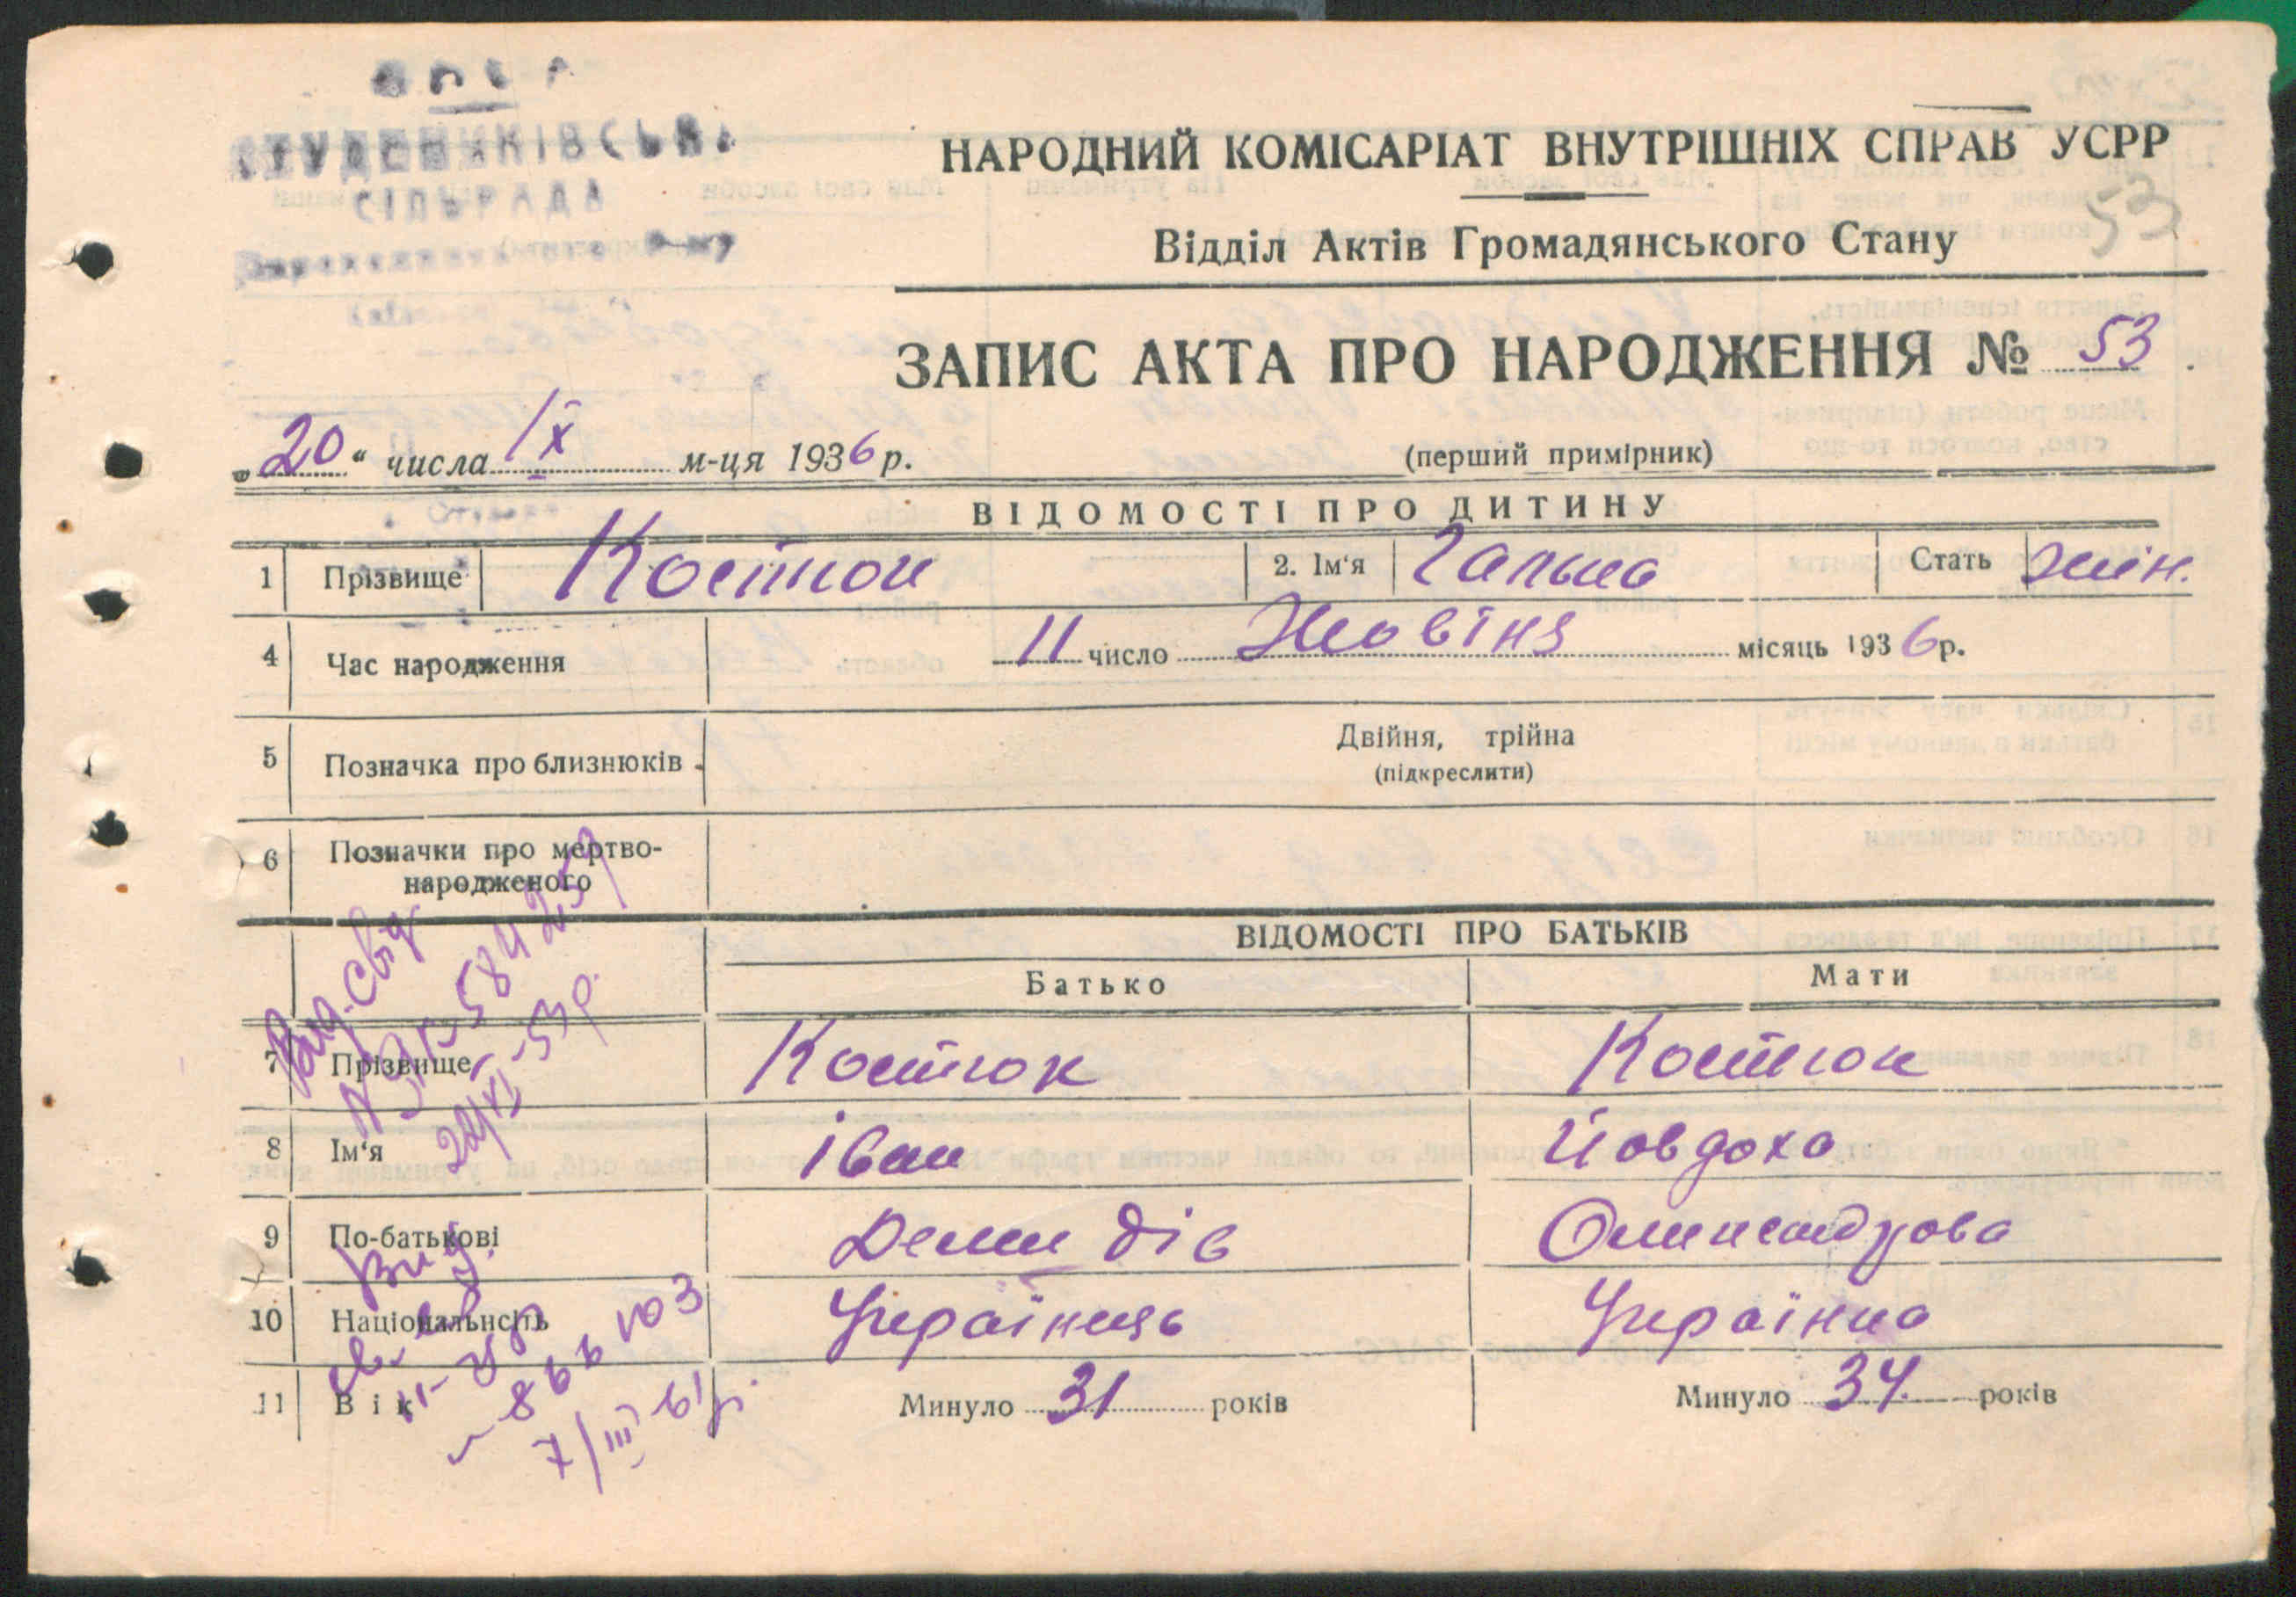 УСРР
СТУДЕНИКІВСЬКА
СІЛЬРАДА
НАРОДНИЙ КОМІСАРІАТ ВНУТРІШНІХ СПРАВ УСРР
53
Відділ Актів Громадянського Стану
ЗАПИС АКТА ПРО НАРОДЖЕННЯ № 53.
„20“ числа IX м-ця 1936 р.
(перший примірник)
ВІДОМОСТІ ПРО ДИТИНУ
1 Прізвище Костюк 2. Ім‘я Галька Стать жін.
4 Час народження 11 число Жовтня місяць 1936 р.
5 Позначка про близнюків. Двійня, трійна
(підкреслити)
6 Позначки про мертво-
народженого
ВІДОМОСТІ ПРО БАТЬКІВ
Батько Мати
7 Прізвище Костюк Костюк
8 Ім‘я Іван Йовдоха
9 По-батькові Демидів Олександрова
10 Національнсіть Українець Українка
11 Вік Минуло 31 років Минуло 34 років
Вид. свід
Вид.
7/III 61р.